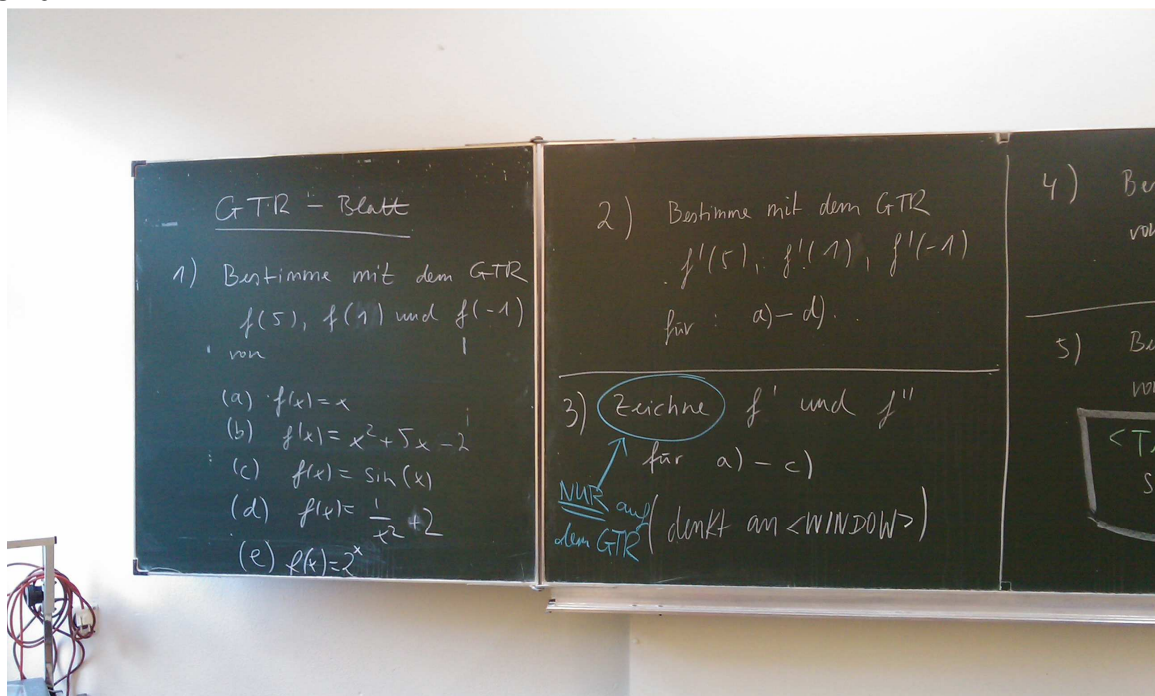 GTR - Blatt
1) Bestimme mit dem GTR
f(5), f(1) und f(-1)
von
(a) f(x) = x
(b) f(x) = x² + 5x - 2
(c) f(x) = sin(x)
(d) f(x) = 1/x² + 2
(e) f(x) = 2^x
2) Bestimme mit dem GTR
f'(5), f'(1), f'(-1)
für : a) - d).
3) Zeichne f' und f''
für a) - c)
NUR auf
dem GTR
(denkt an <WINDOW>)
4) Be
von
5) Be
vo
<T
S